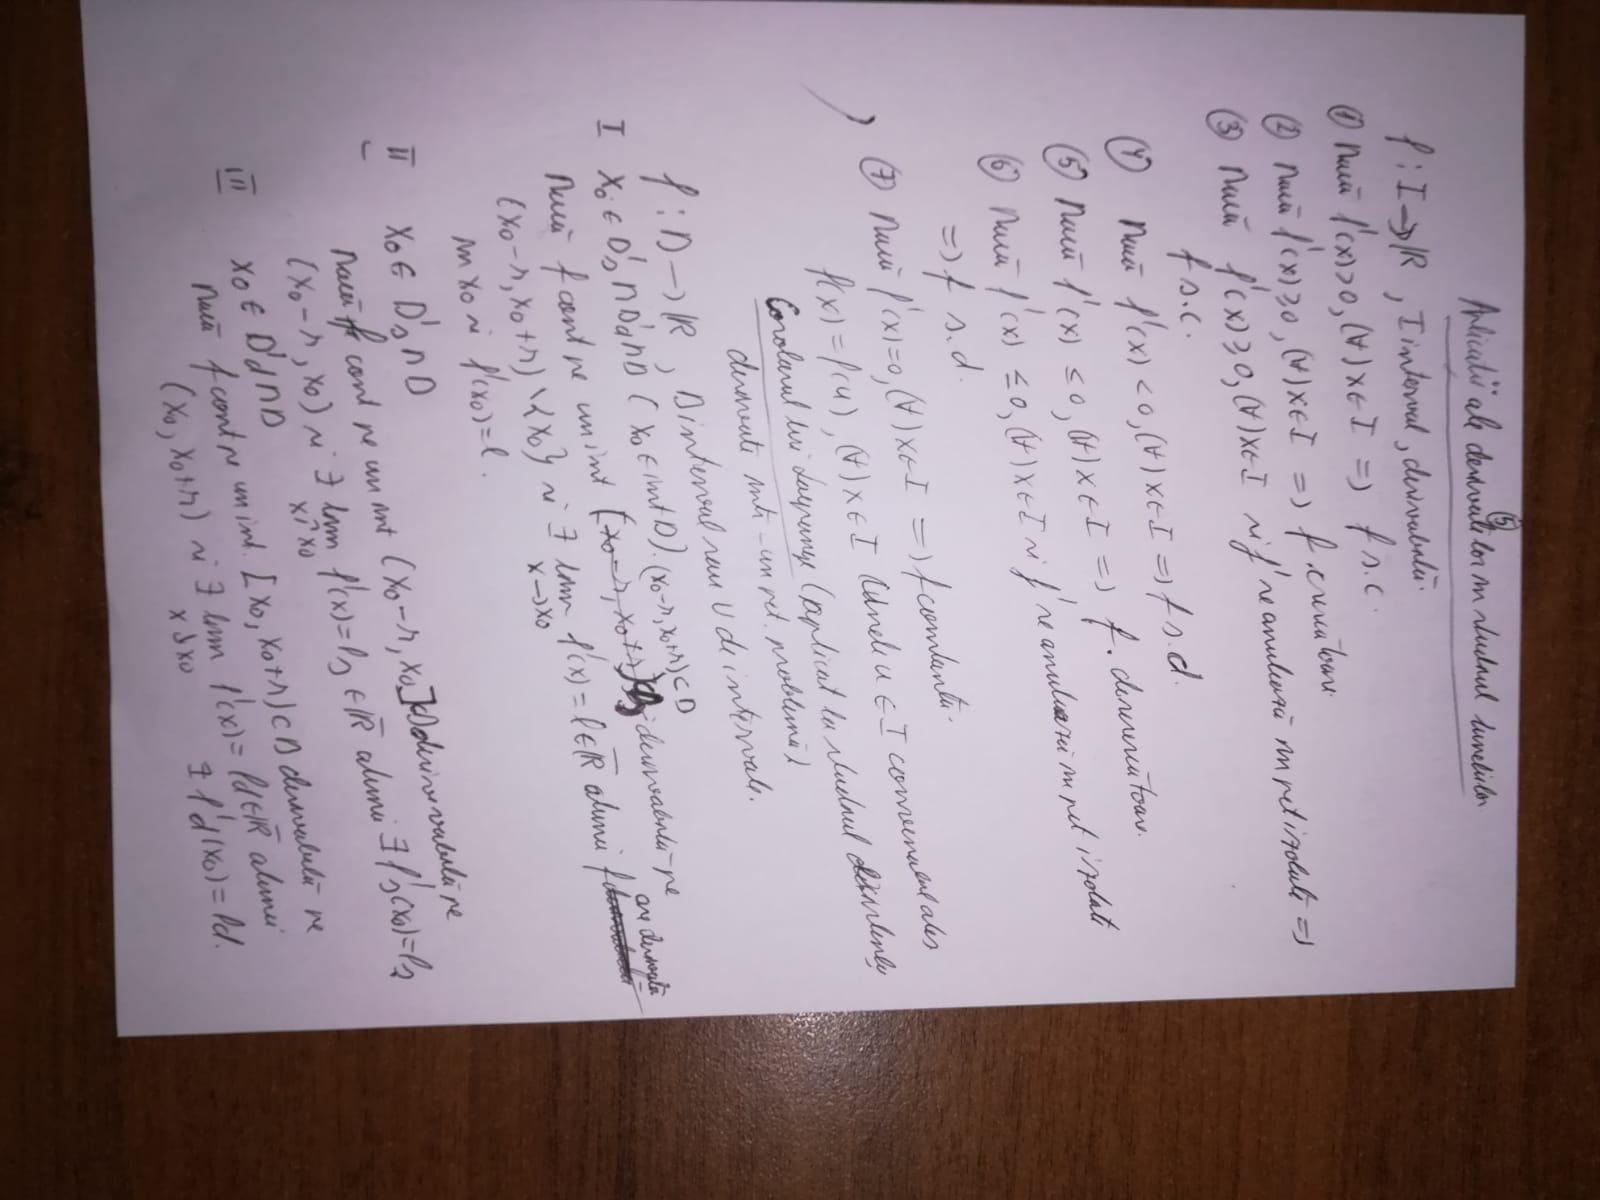 5
Aplicatii ale derivatelor în studiul functiilor
f : I → ℝ , I interval, derivabilă.
① Dacă f'(x)>0, (∀)x∈I => f s.c.
② Dacă f'(x)≥0, (∀)x∈I => f. crescătoare.
③ Dacă f'(x)≥0, (∀)x∈I și f' se anulează în pct izolate =>
f s.c.
④ Dacă f'(x)<0, (∀)x∈I => f s.d.
⑤ Dacă f'(x)≤0, (∀)x∈I => f. descrescătoare.
⑥ Dacă f'(x)≤0, (∀)x∈I și f' se anulează în pct izolate
=> f s.d.
⑦ Dacă f'(x)=0, (∀)x∈I => f constantă.
f(x)=f(u), (∀)x∈I (unde u∈I convenabil ales
Corolarul lui Lagrange (aplicat la studiul existenței
derivatei într-un pct. problemă)
f : D → ℝ , D interval sau U de intervale.
I x₀∈D's∩D'd∩D (x₀∈int D). (x₀-r, x₀+r)⊂D
Dacă f cont pe un int (x₀-r, x₀+r), derivabilă pe
(x₀-r, x₀+r)\{x₀} și ∃ lim x→x₀ f'(x)=l∈ℝ̄ atunci f are derivată
în x₀ și f'(x₀)=l.
II x₀∈D's∩D
Dacă f cont pe un int (x₀-r, x₀]⊂D derivabilă pe
(x₀-r, x₀) și ∃ lim x↑x₀ f'(x)=ls∈ℝ̄ atunci ∃ f's(x₀)=ls
III x₀∈D'd∩D
Dacă f cont pe un int. [x₀, x₀+r)⊂D derivabilă pe
(x₀, x₀+r) și ∃ lim x↓x₀ f'(x)=ld∈ℝ̄ atunci
∃ f'd(x₀)=ld.